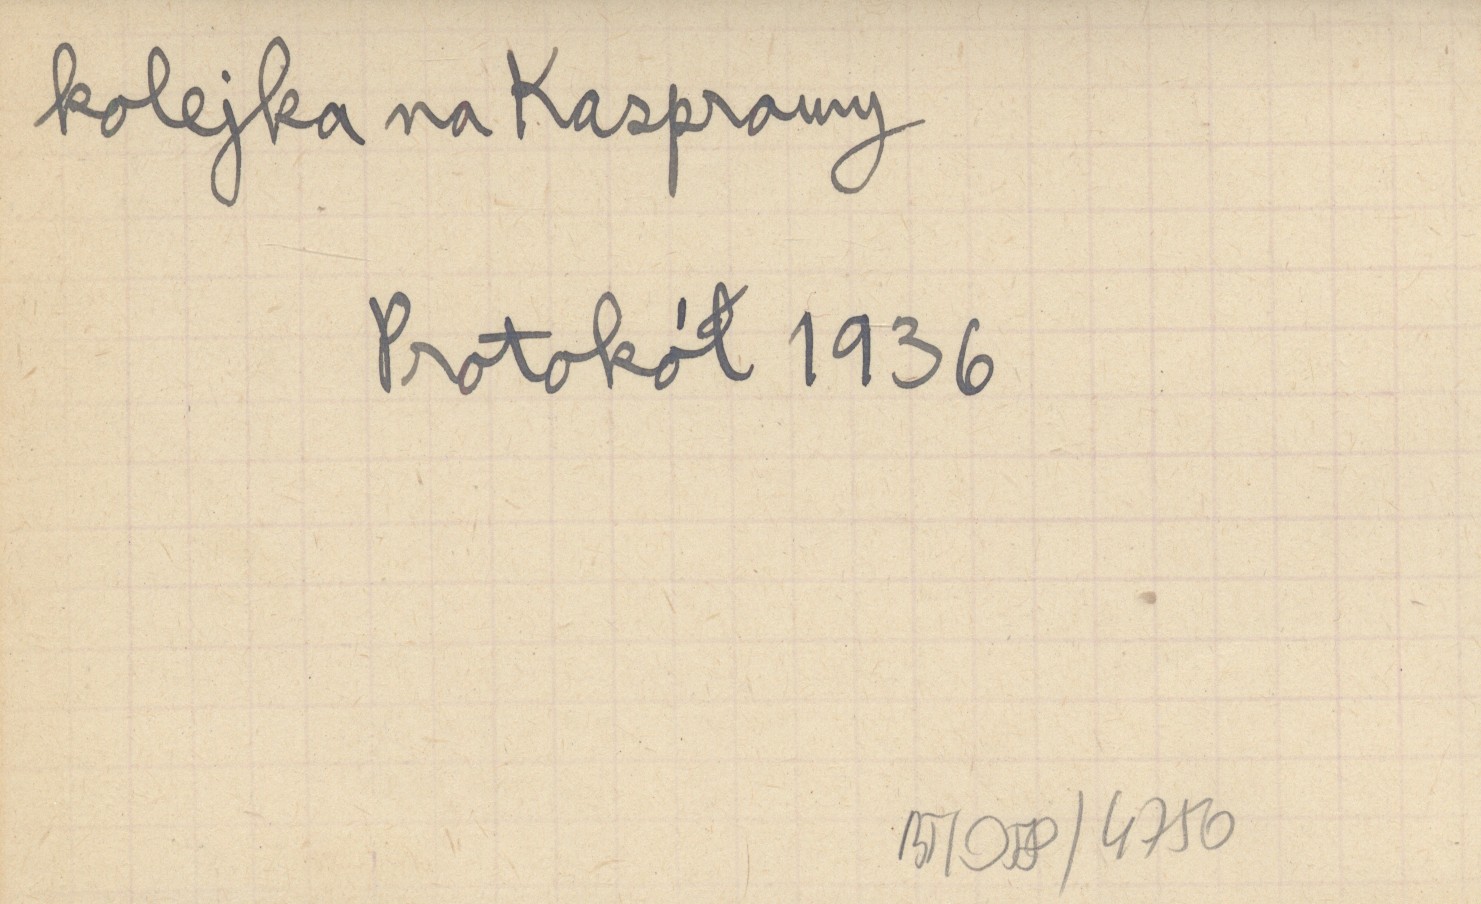 kolejka na Kasprowy
Protokół 1936
4750